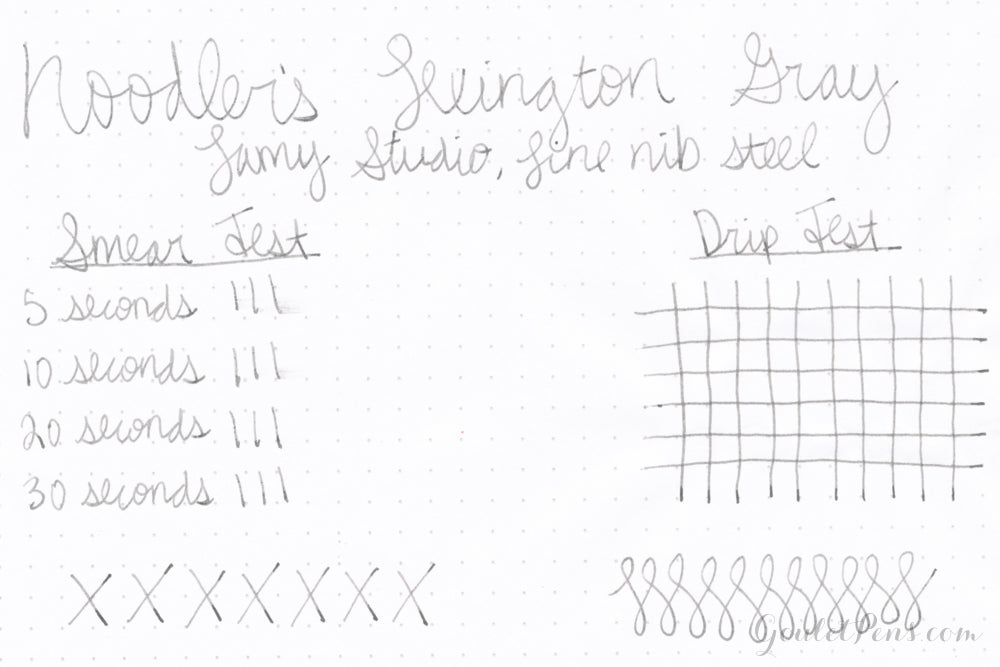 Noodler's Lexington Gray
Lamy Studio, fine nib steel
Smear Test
Drip Test
5 seconds
10 seconds
20 seconds
30 seconds
X X X X X X X
GouletPens.com